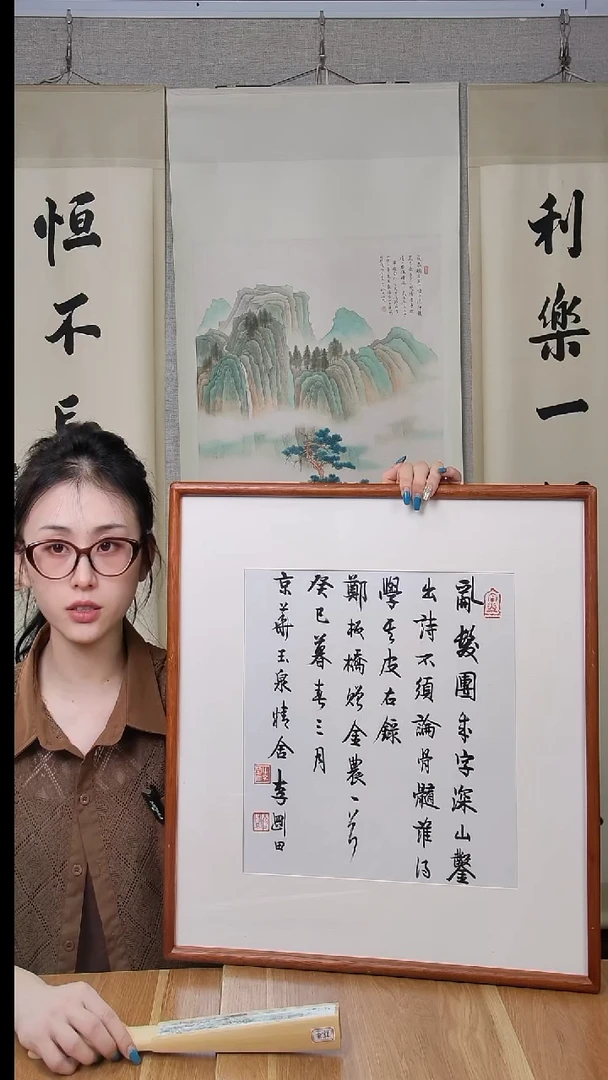 利樂一
恒不
亂髮團成字深山鑿
出詩不須論骨髓誰得
學其皮右錄
鄭板橋贈金農一首
癸巳暮春三月
京華玉泉精舍李剛田